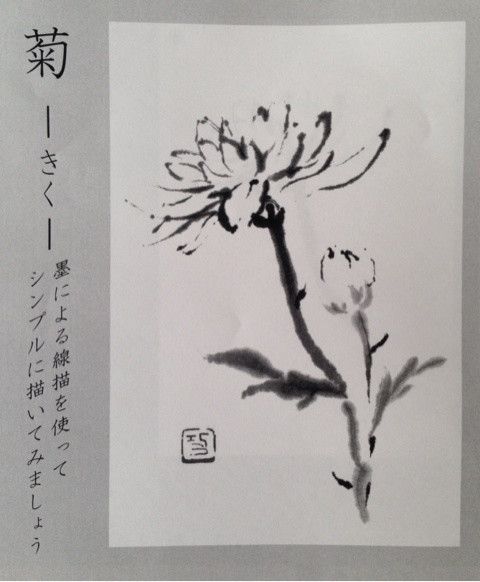 菊
ーきくー
墨による線描を使って
シンプルに描いてみましょう